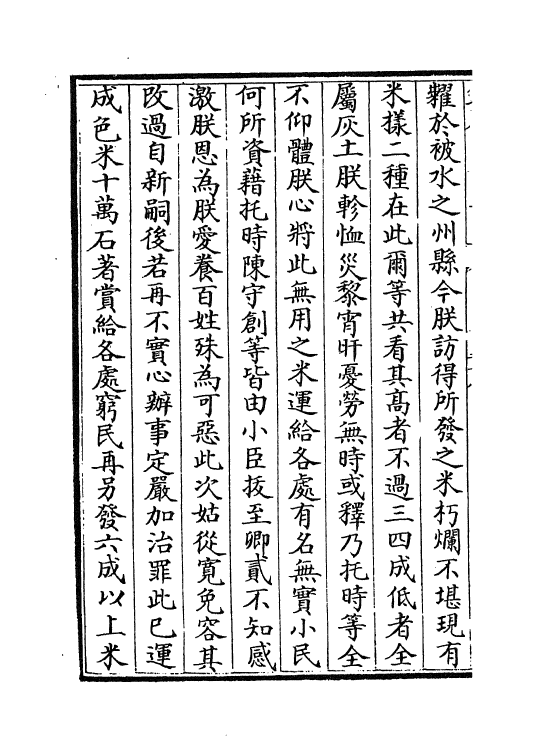 糶於被水之州縣今朕訪得所發之米朽爛不堪現有
米樣二種在此爾等共看其髙者不過三四成低者全
屬灰土朕軫恤災黎宵旰憂勞無時或釋乃托時等全
不仰體朕心將此無用之米運給各處有名無實小民
何所資藉托時陳守創等皆由小臣抜至卿貳不知感
激朕恩為朕愛養百姓殊為可惡此次姑從寛免容其
改過自新嗣後若再不實心辦事定嚴加治罪此已運
成色米十萬石著賞給各處窮民再另發六成以上米